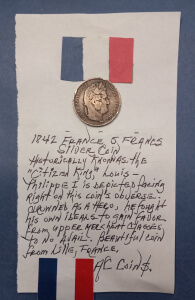 1842 FRANCE 5 FRANCS
SILVER COIN
HISTORICALLY KNOWN AS THE
"CITIZEN KING" LOUIS -
PHILIPPE I IS DEPICTED FACING
RIGHT ON THIS COIN'S OBVERSE
CROWNED AS A HERO. HE FOUGHT
HIS OWN IDEALS TO GAIN FAVOR
FROM UPPER MERCHANT CLASSES,
TO NO AVAIL. BEAUTIFUL COIN
FROM LILLE, FRANCE.
COIN$.